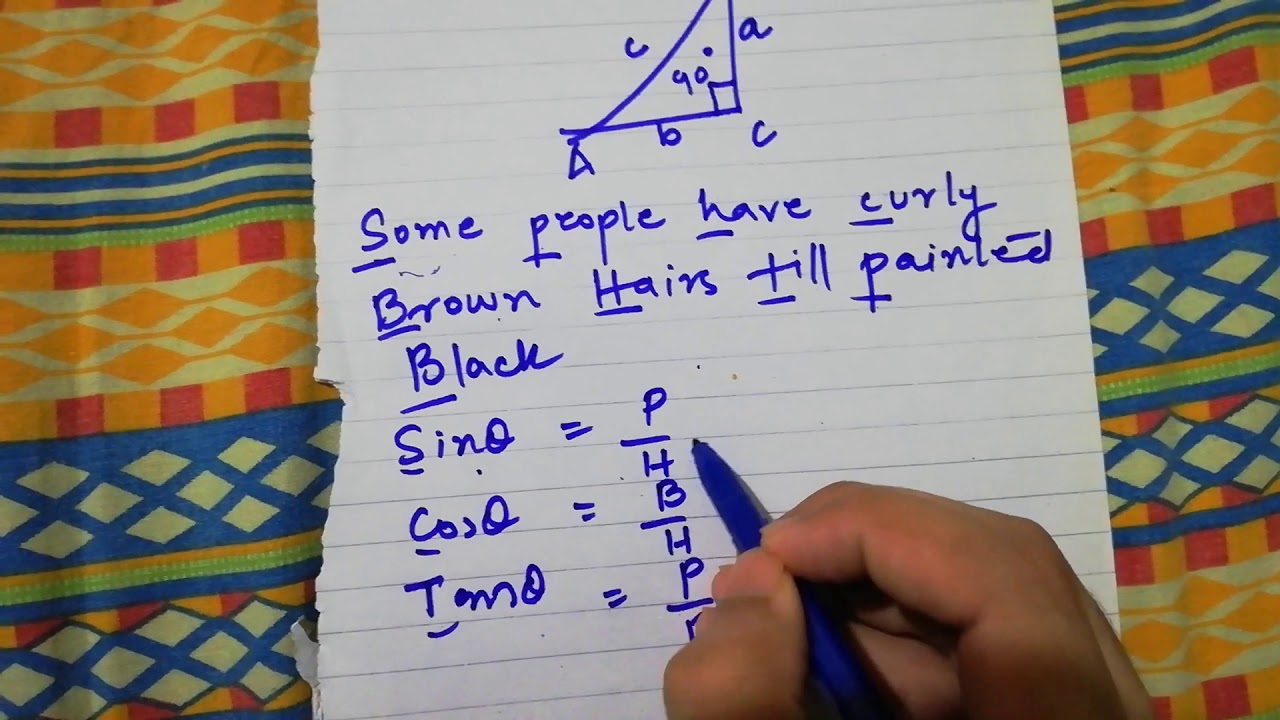 c a
90
b
A C
Some people have curly
Brown Hairs till painted
Black
Sinθ = P/H
Cosθ = B/H
Tanθ = P/